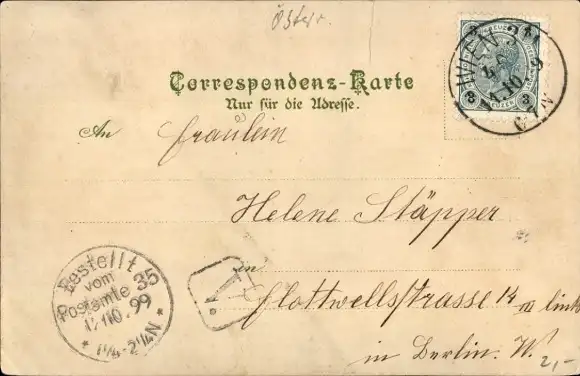 Österr.
WIEN 3/1
4.10.9
3 3
Correspondenz-Karte
Nur für die Adresse.
An Fräulein
Helene Stäpper
in
Flottwellstrasse 14 III links
in Berlin. W.
Bestellt
vom
Postamte 35
12/10 99
1 1/4-2 1/4N
T
2,-